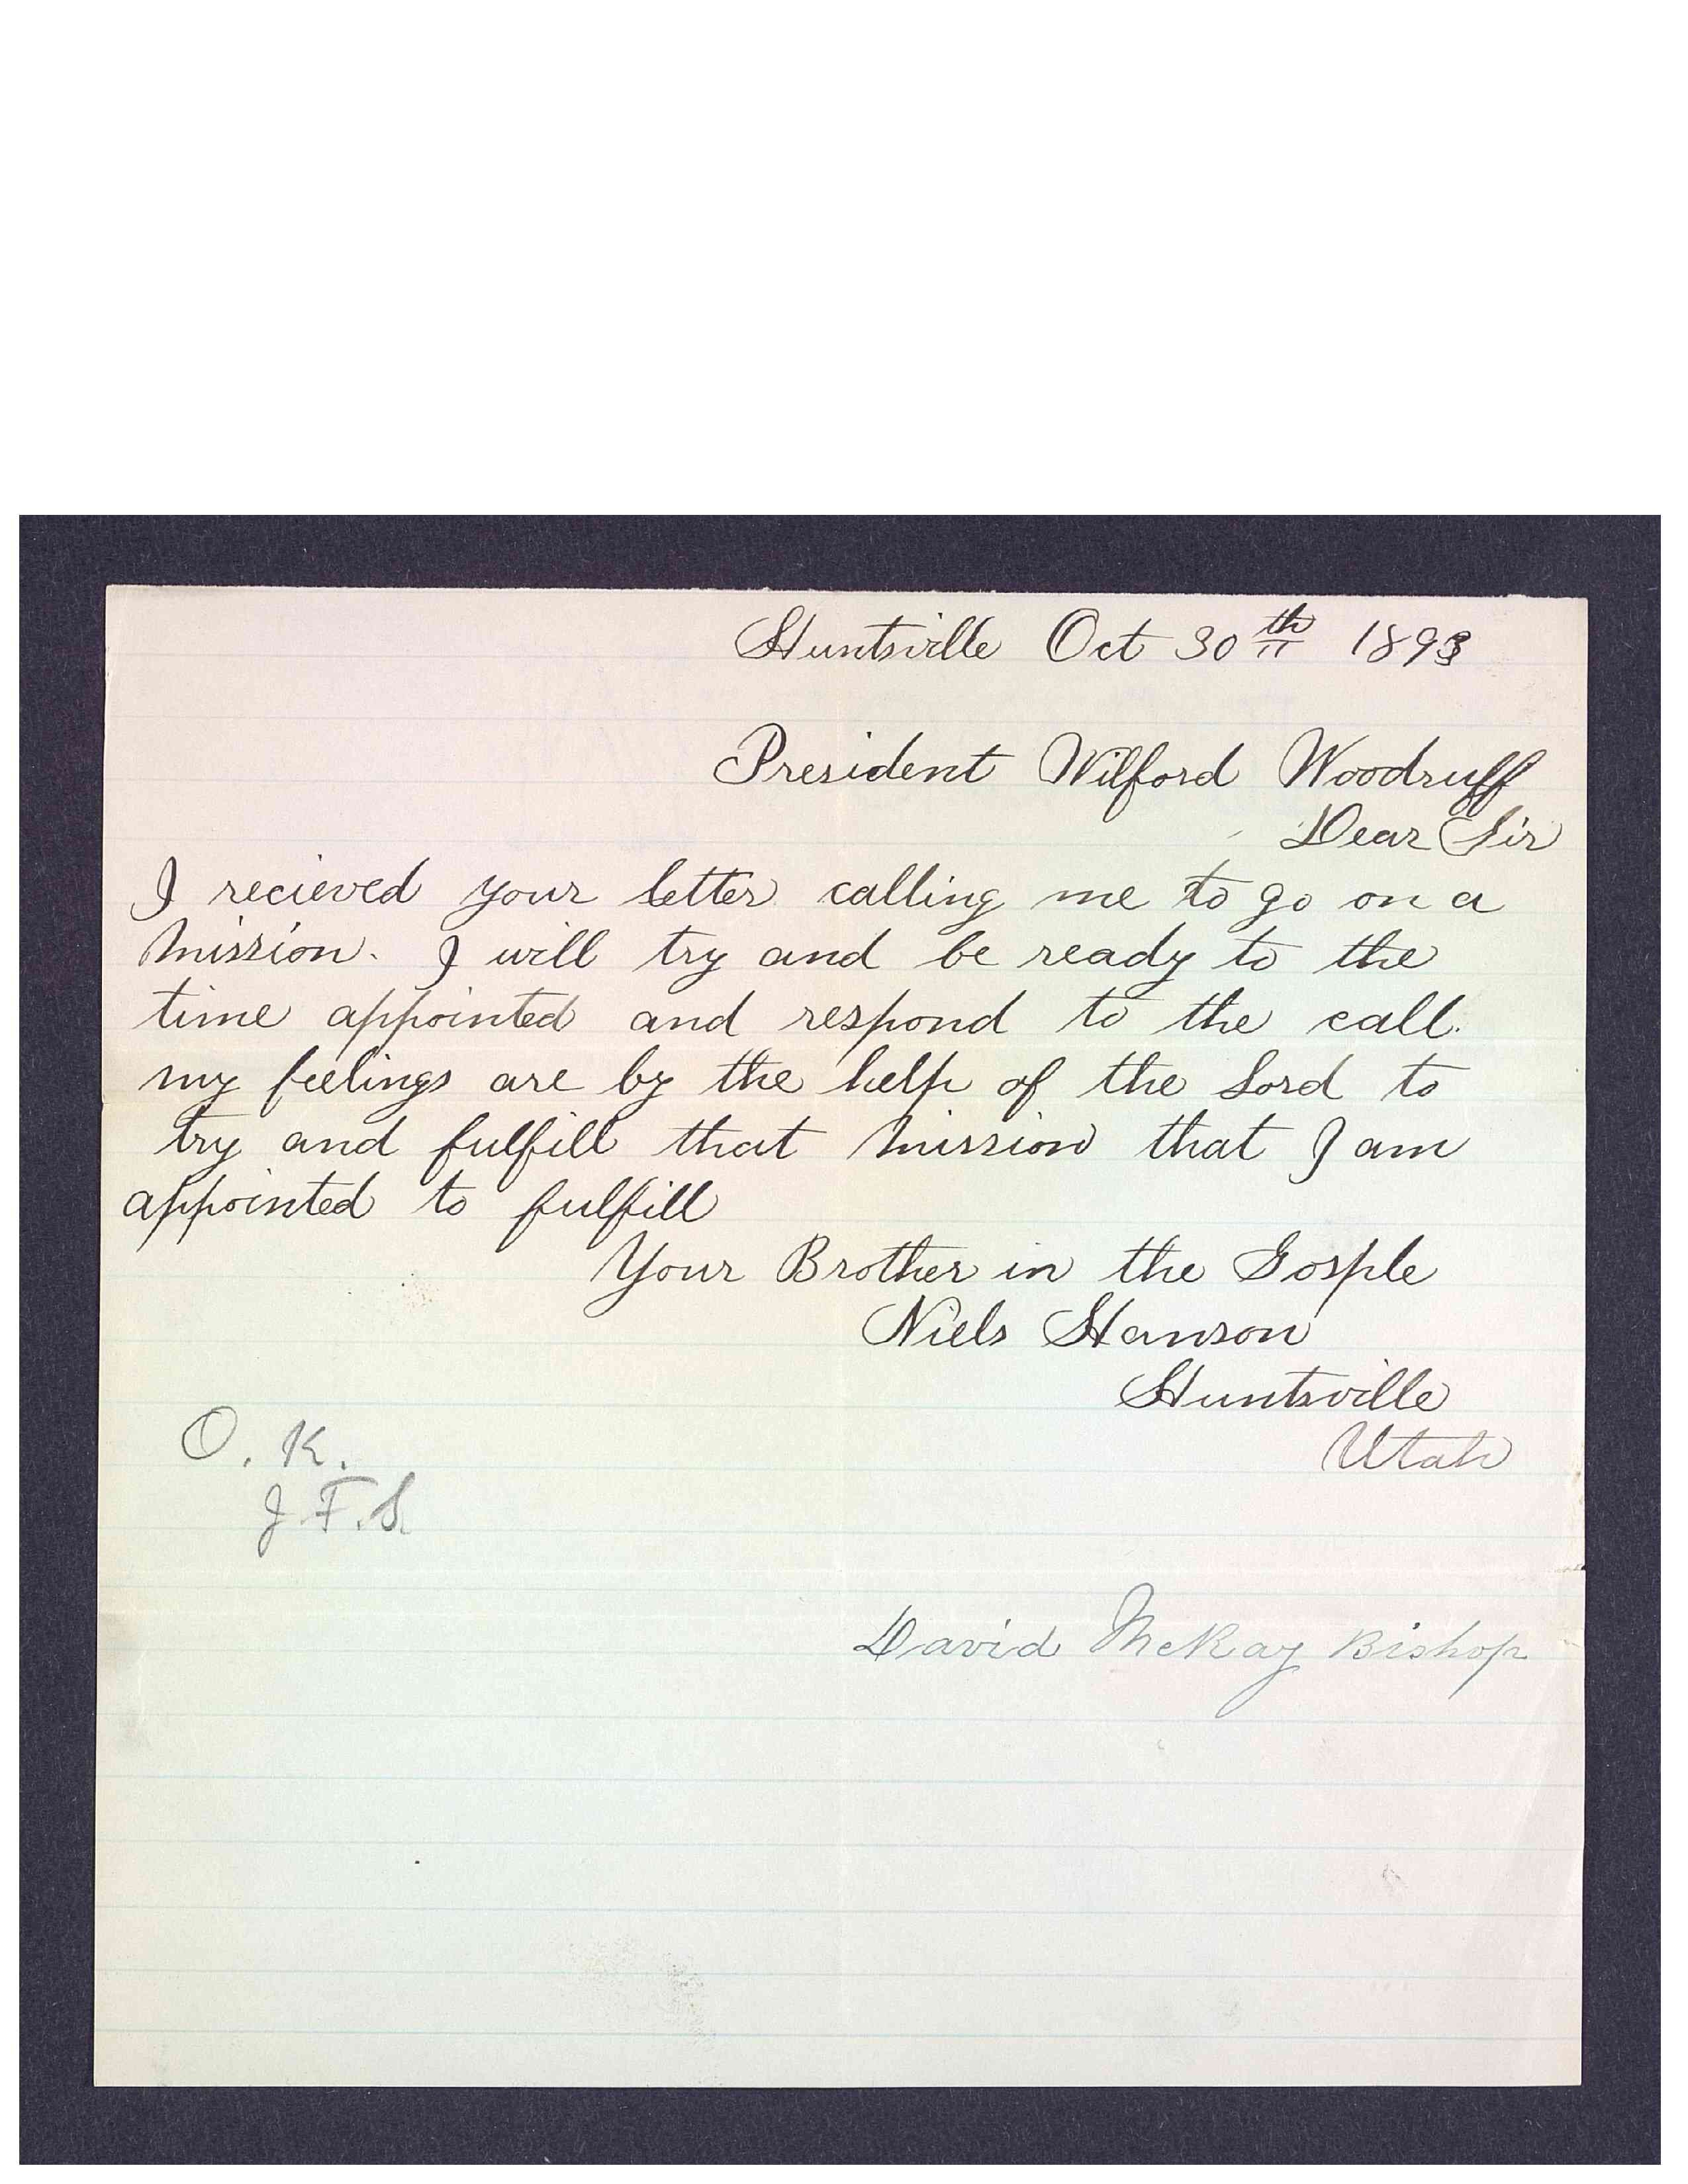 Huntsville Oct 30th 1893
President Wilford Woodruff
Dear Sir
I recieved your letter calling me to go on a
mission. I will try and be ready to the
time appointed and respond to the call.
my feelings are by the help of the Lord to
try and fulfill that mission that I am
appointed to fulfill
Your Brother in the Gosple
Niels Hanson
Huntsville
Utah
O. K.
J. F. S.
David McKay Bishop